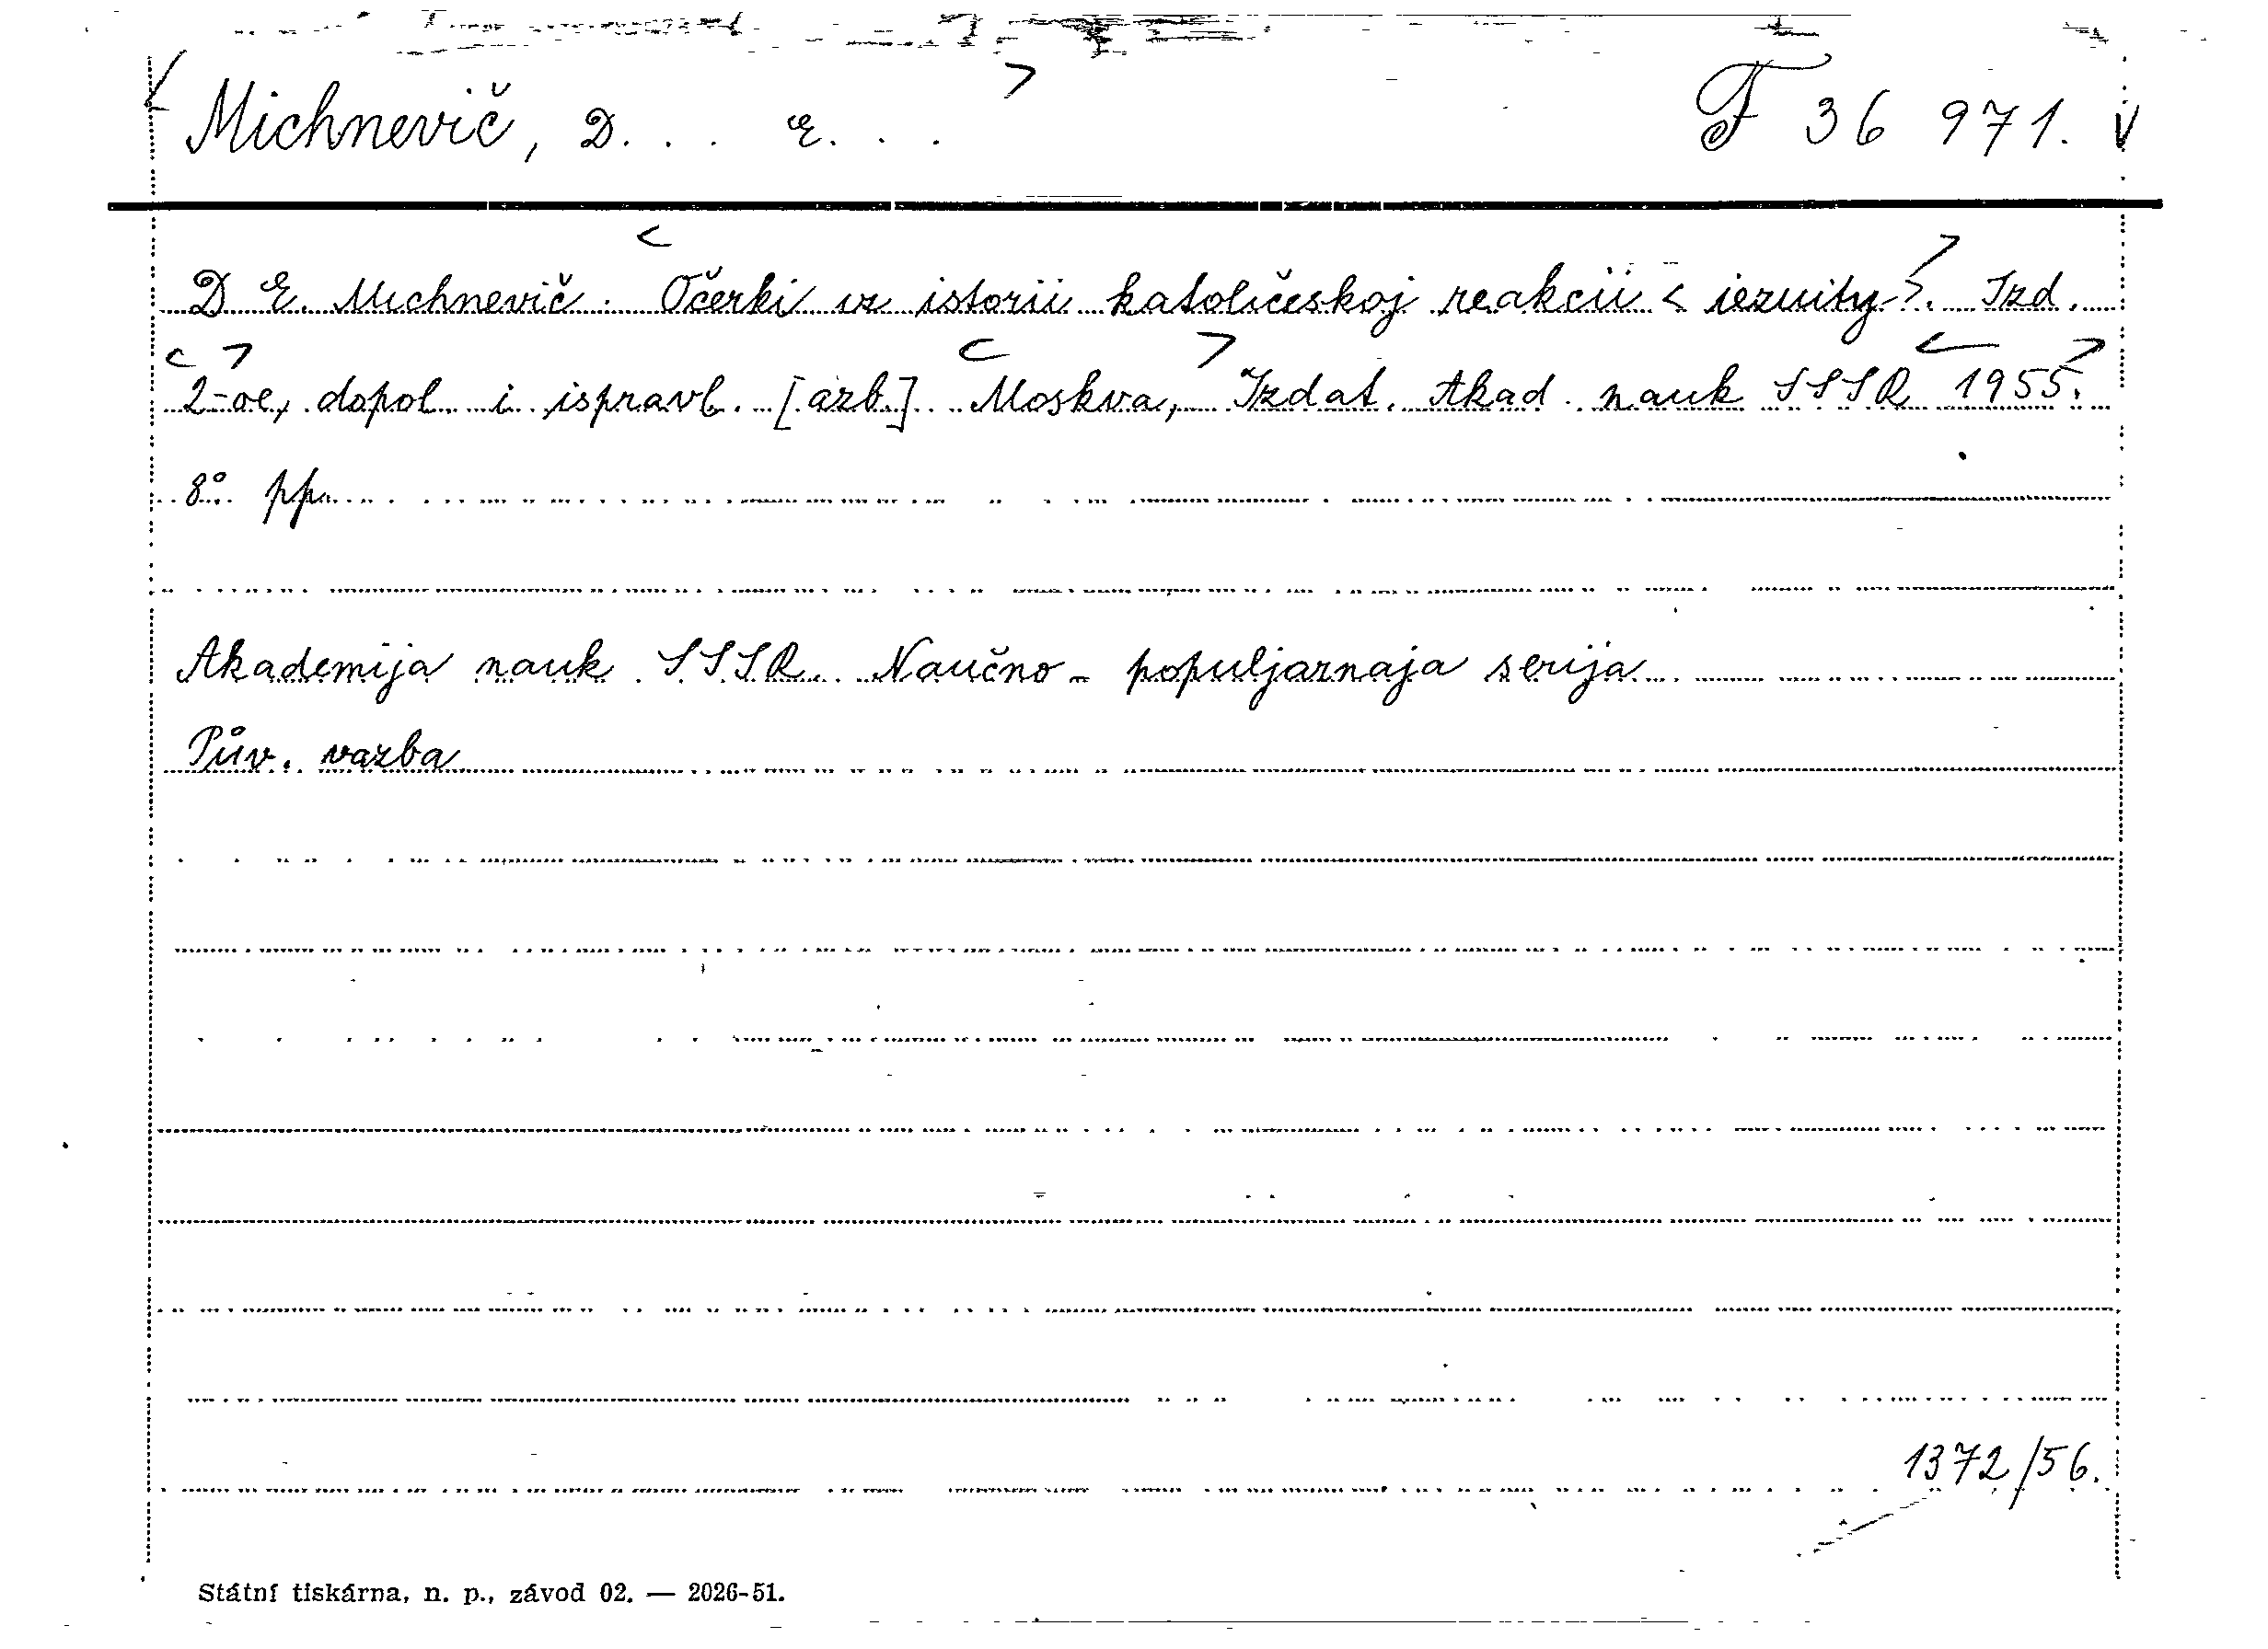 Michnevič, D. . . E. . . F 36 971.
D E. Michnevič. Očerki iz istorii katoličeskoj reakcii < iezuity >. Izd.
2-oe, dopol i ispravl. [azb.] Moskva, Izdat. Akad. nauk SSSR 1955.
8° pp.
Akademija nauk SSSR. Naučno-populjarnaja serija.
Pův. vazba
1372/56.
Státní tiskárna, n. p., závod 02. — 2026-51.